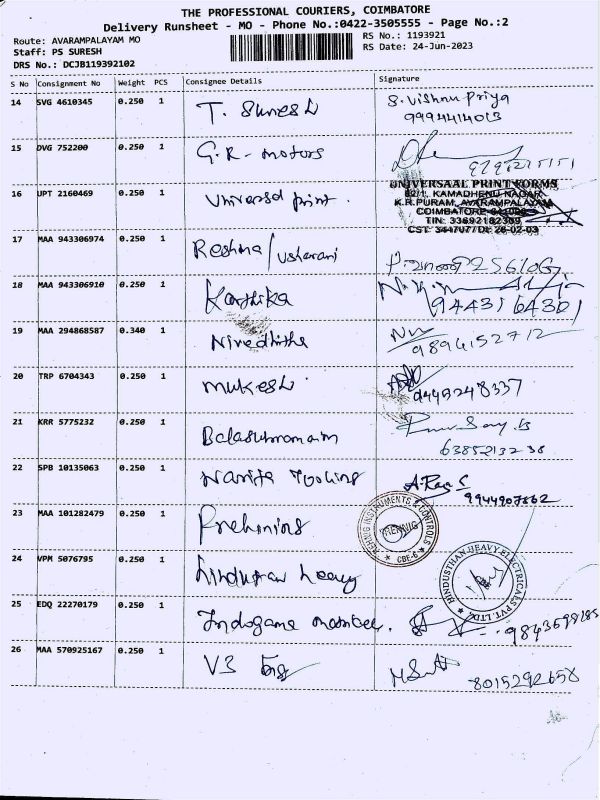 THE PROFESSIONAL COURIERS, COIMBATORE
Delivery Runsheet - MO - Phone No.:0422-3505555 - Page No.:2
Route: AVARAMPALAYAM MO
RS No.: 1193921
Staff: PS SURESH
RS Date: 24-Jun-2023
DRS No.: DCJB119392102
S No Consignment No Weight PCS Consignee Details Signature
14 SVG 4610345 0.250 1 T. Suresh S. Vishnu Priya
9994414013
15 DVG 752200 0.250 1 G.R. motors
16 UPT 2160469 0.250 1 Universal print.
UNIVERSAAL PRINT FORMS
82/1, KAMADHENU NAGAR
K.R.PURAM, AVARAMPALAYAM
COIMBATORE
TIN: 33692182309
17 MAA 943306974 0.250 1 Reshma / Usharani
18 MAA 943306910 0.250 1 Karthika
9443164301
19 MAA 294868587 0.340 1 Nivedhitha
9894152712
20 TRP 6704343 0.250 1 mukesh
9449248337
21 KRR 5775232 0.250 1 Balasubramaniam
6385213238
22 SPB 10135063 0.250 1 Tooling
9944907862
23 MAA 101282479 0.250 1
PREHNIG INSTRUMENTS & CONTROLS
CBE-6
24 VPM 5076795 0.250 1 hindustan heavy
HINDUSTHAN HEAVY ELECTRICALS PVT. LTD.
25 EDQ 22270179 0.250 1 9843698185
26 MAA 570925167 0.250 1 V3 Eng
8015292658